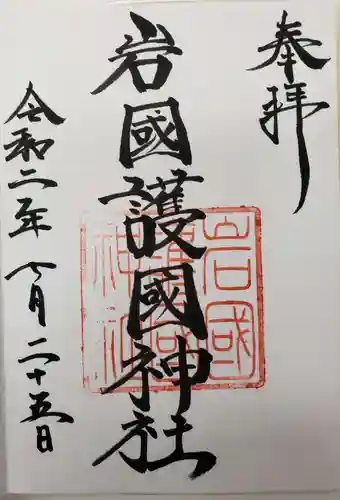 奉拝
岩國護國神社
岩國
護國
神社
令和二年 七月二十五日